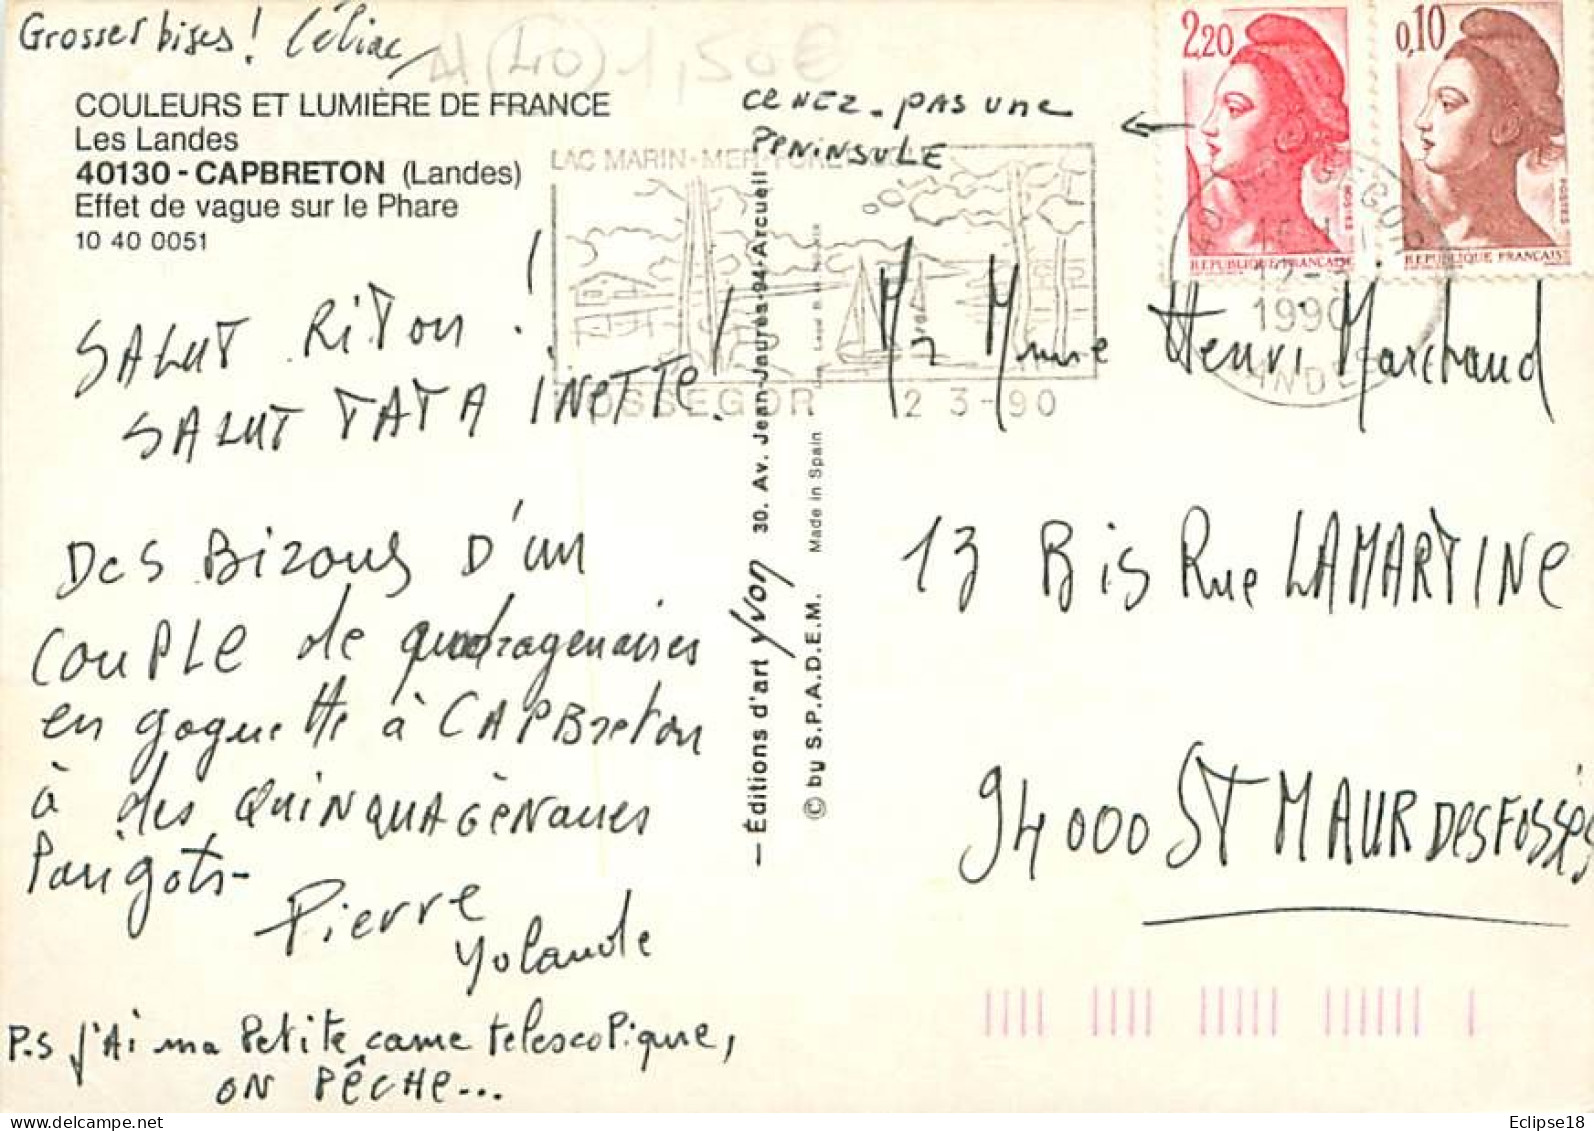 Grosses bises! Céline
A (40) 1,50€
COULEURS ET LUMIÈRE DE FRANCE
Les Landes
40130 - CAPBRETON (Landes)
Effet de vague sur le Phare
10 40 0051
SALUT RiTon !
SALUT TATA INETTe !
Des Bizous D'un
couPLe de quadragenaires
en goguette à CAPBreton
à des QUINQUAGÈNAires
Parigots-
Pierre
Yolande
P.S J'Ai ma Petite came telescoPique,
ON PÊCHe...
— Éditions d'art Yvon 30. Av. Jean-Jaurès-94-Arcueil
© by S.P.A.D.E.M. Made in Spain
LAC MARIN-MER-
HOSSEGOR 12 3-90
ce NEZ - PAS une
PENINSULE
2,20
POSTES
REPUBLIQUE FRANÇAISE
0,10
POSTES
REPUBLIQUE FRANÇAISE
40 HOSSEGOR
1990
LANDES
Mr Mme Henri Marchaud
13 Bis Rue LAMARTINe
94000 ST MAUR DesFOSSés
Eclipse18